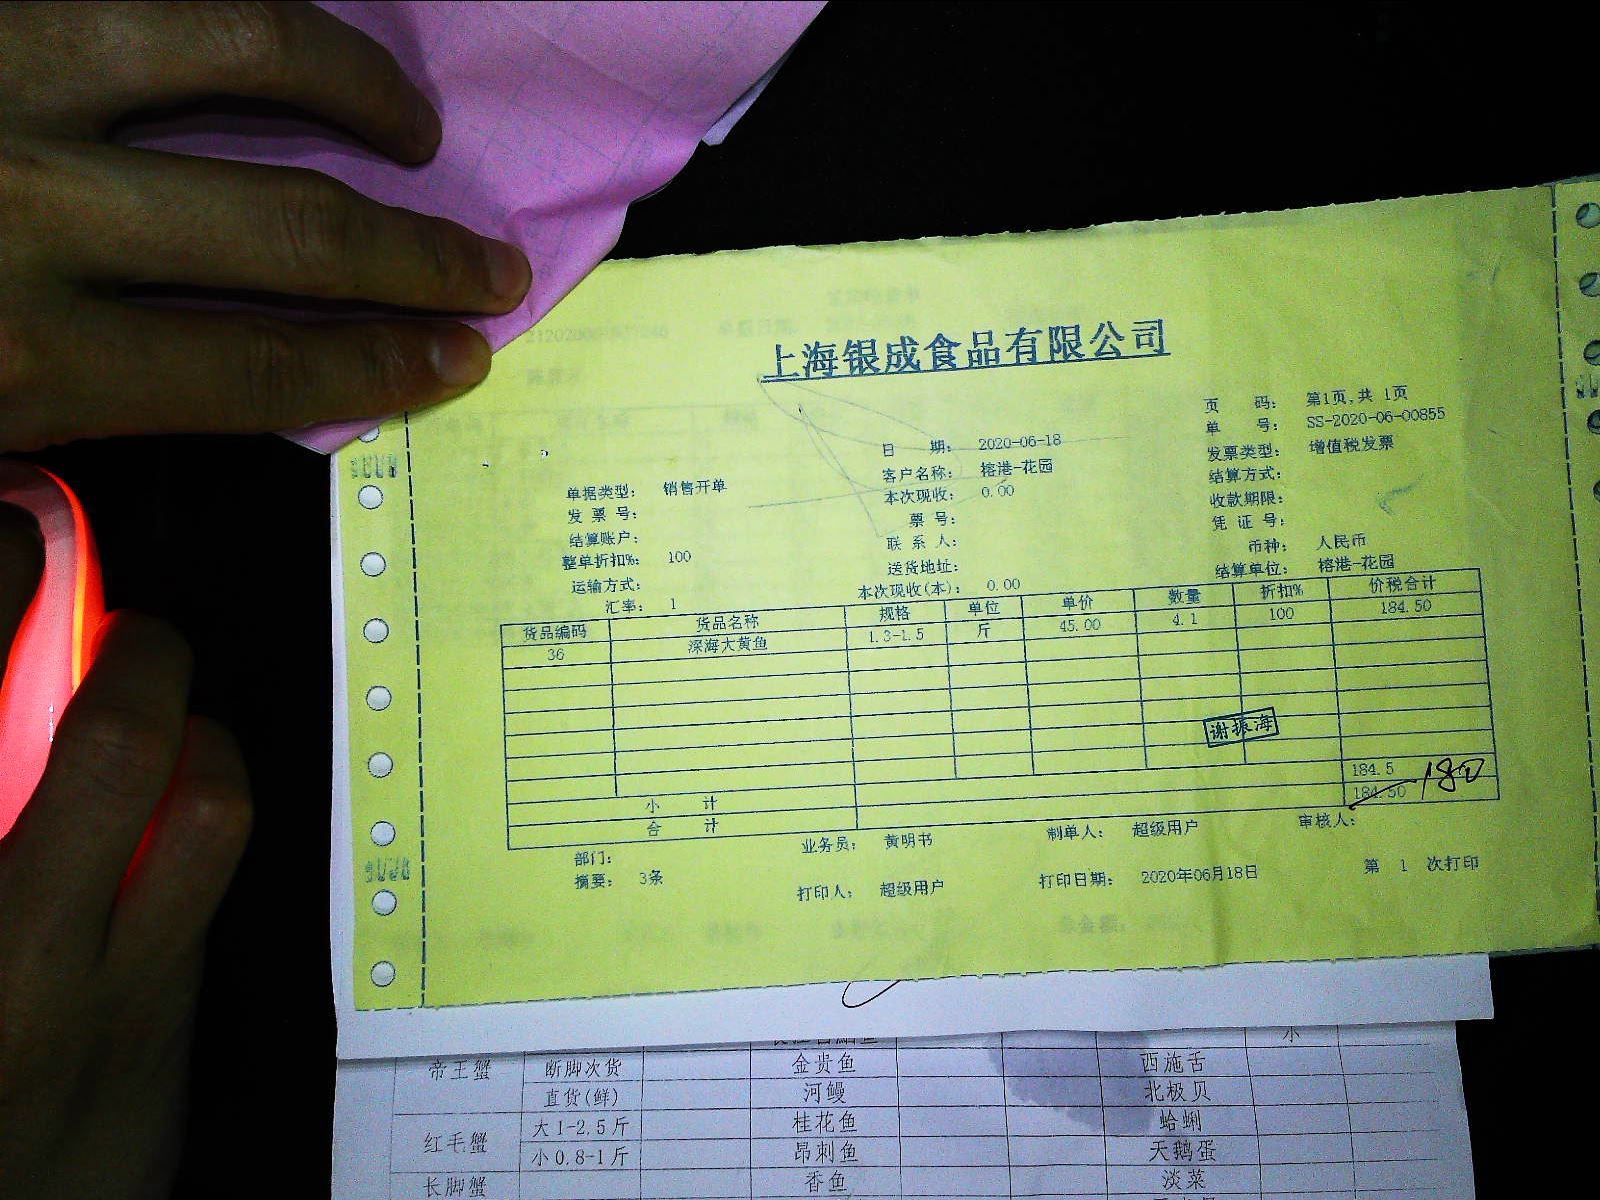 上海银成食品有限公司
页 码： 第1页,共 1页
单 号： SS-2020-06-00855
日 期： 2020-06-18
发票类型： 增值税发票
客户名称： 榕港-花园
结算方式：
单据类型： 销售开单
本次现收： 0.00
收款期限：
发 票 号：
票 号：
凭 证 号：
结算账户：
联 系 人：
币种： 人民币
整单折扣%： 100
送货地址：
结算单位： 榕港-花园
运输方式：
本次现收(本)： 0.00
汇率： 1
货品编码 货品名称 规格 单位 单价 数量 折扣% 价税合计
36 深海大黄鱼 1.3-1.5 斤 45.00 4.1 100 184.50
谢振海
小 计 184.5
合 计 184.50 180
部门： 业务员： 黄明书 制单人： 超级用户 审核人：
摘要： 3条 打印人： 超级用户 打印日期： 2020年06月18日 第 1 次打印
小
帝王蟹 断脚次货 金贵鱼 西施舌
直货(鲜) 河鳗 北极贝
红毛蟹 大1-2.5斤 桂花鱼 蛤蜊
小0.8-1斤 昂刺鱼 天鹅蛋
长脚蟹 香鱼 淡菜